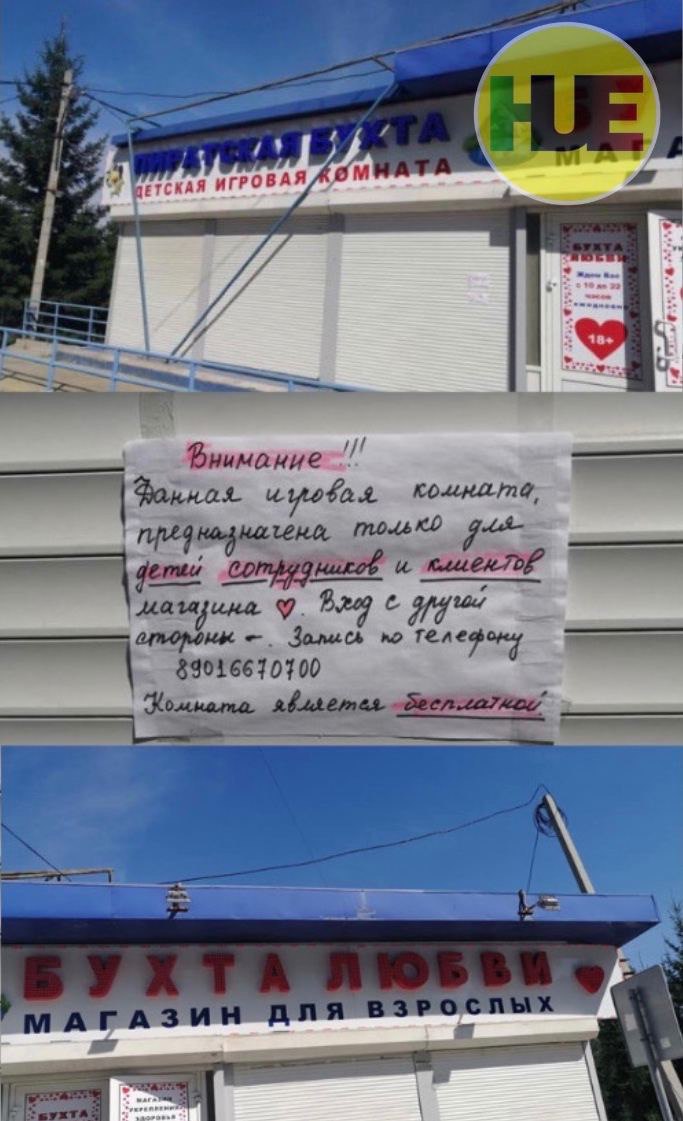 HUE
ПИРАТСКАЯ БУХТА
ДЕТСКАЯ ИГРОВАЯ КОМНАТА
МАГА
БУХТА
ЛЮБВИ
Ждем Вас
с 10 до 22
часов
ежедневно
18+
Внимание!!!
Данная игровая комната,
предназначена только для
детей сотрудников и клиентов
магазина ♥. Вход с другой
стороны –. Запись по телефону
89016670700
Комната является бесплатной
БУХТА ЛЮБВИ
МАГАЗИН ДЛЯ ВЗРОСЛЫХ
БУХТА
МАГАЗИН
УКРЕПЛЕНИЯ
ЗДОРОВЬЯ